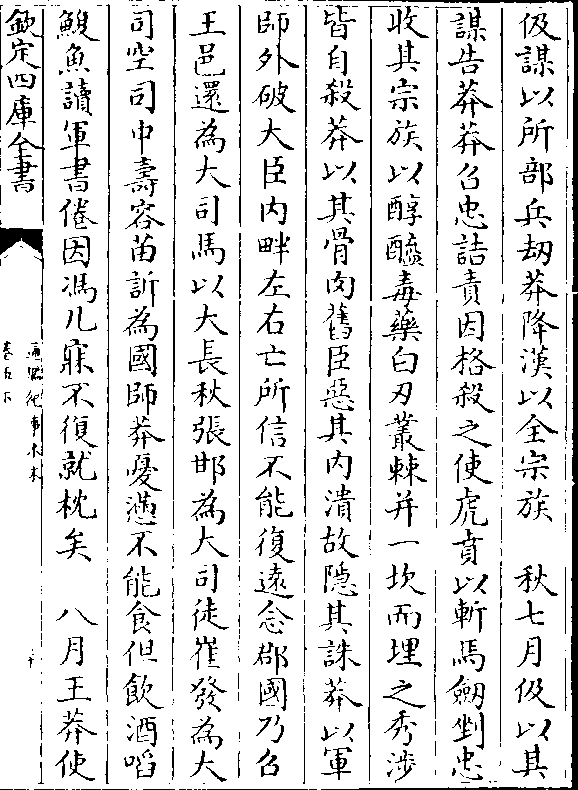 伋謀以所部兵刼莽降漢以全宗族　秋七月伋以其
謀告莽莽召忠詰責因格殺之使虎賁以斬馬劒剉忠
收其宗族以醇醯毒藥白刃叢棘并一坎而埋之秀涉
皆自殺莽以其骨肉舊臣惡其内潰故隱其誅莽以軍
師外破大臣内畔左右亡所信不能復遠念郡國乃召
王邑還為大司馬以大長秋張邯為大司徒崔發為大
司空司中壽容苗訢為國師莽憂懣不能食但飲酒啗
鰒魚讀軍書倦因馮几寐不復就枕矣　八月王莽使
欽定四庫全書
通鑑紀事本末
卷五下